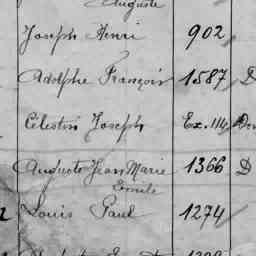 Auguste
Joseph Henri 902
Adolphe François 1587 D
Célestin Joseph Ex. 114 Don
Auguste Jean Marie 1366 D
Emile
Louis Paul 1274